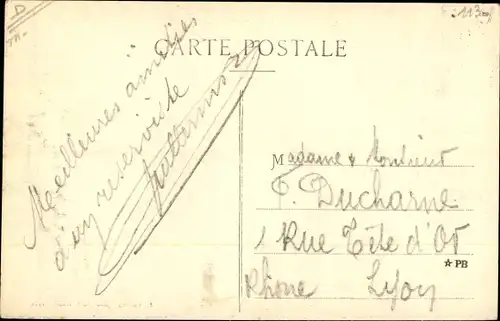 CARTE POSTALE
Meilleures amitiés
d'un réserviste
Madame & Monsieur
P. Ducharne
1 Rue Tête d'Or
Rhône Lyon
★ PB